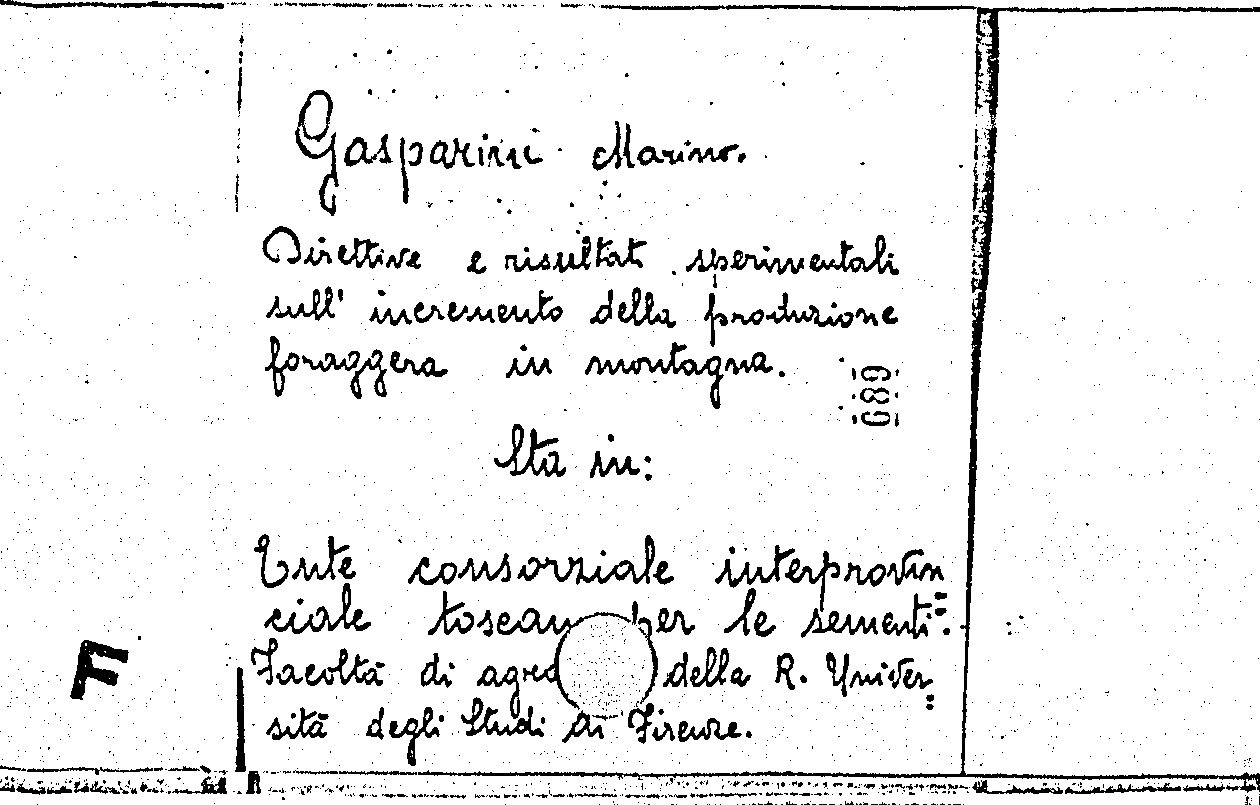 Gasparini Marino.
Direttive e risultati sperimentali
sull' incremento della produzione
foraggera in montagna.
689
Sta in:
Ente consorziale interprovin=
ciale toscan per le sementi.
Facoltà di agro della R. Univer=
sità degli Studi di Firenze.
F